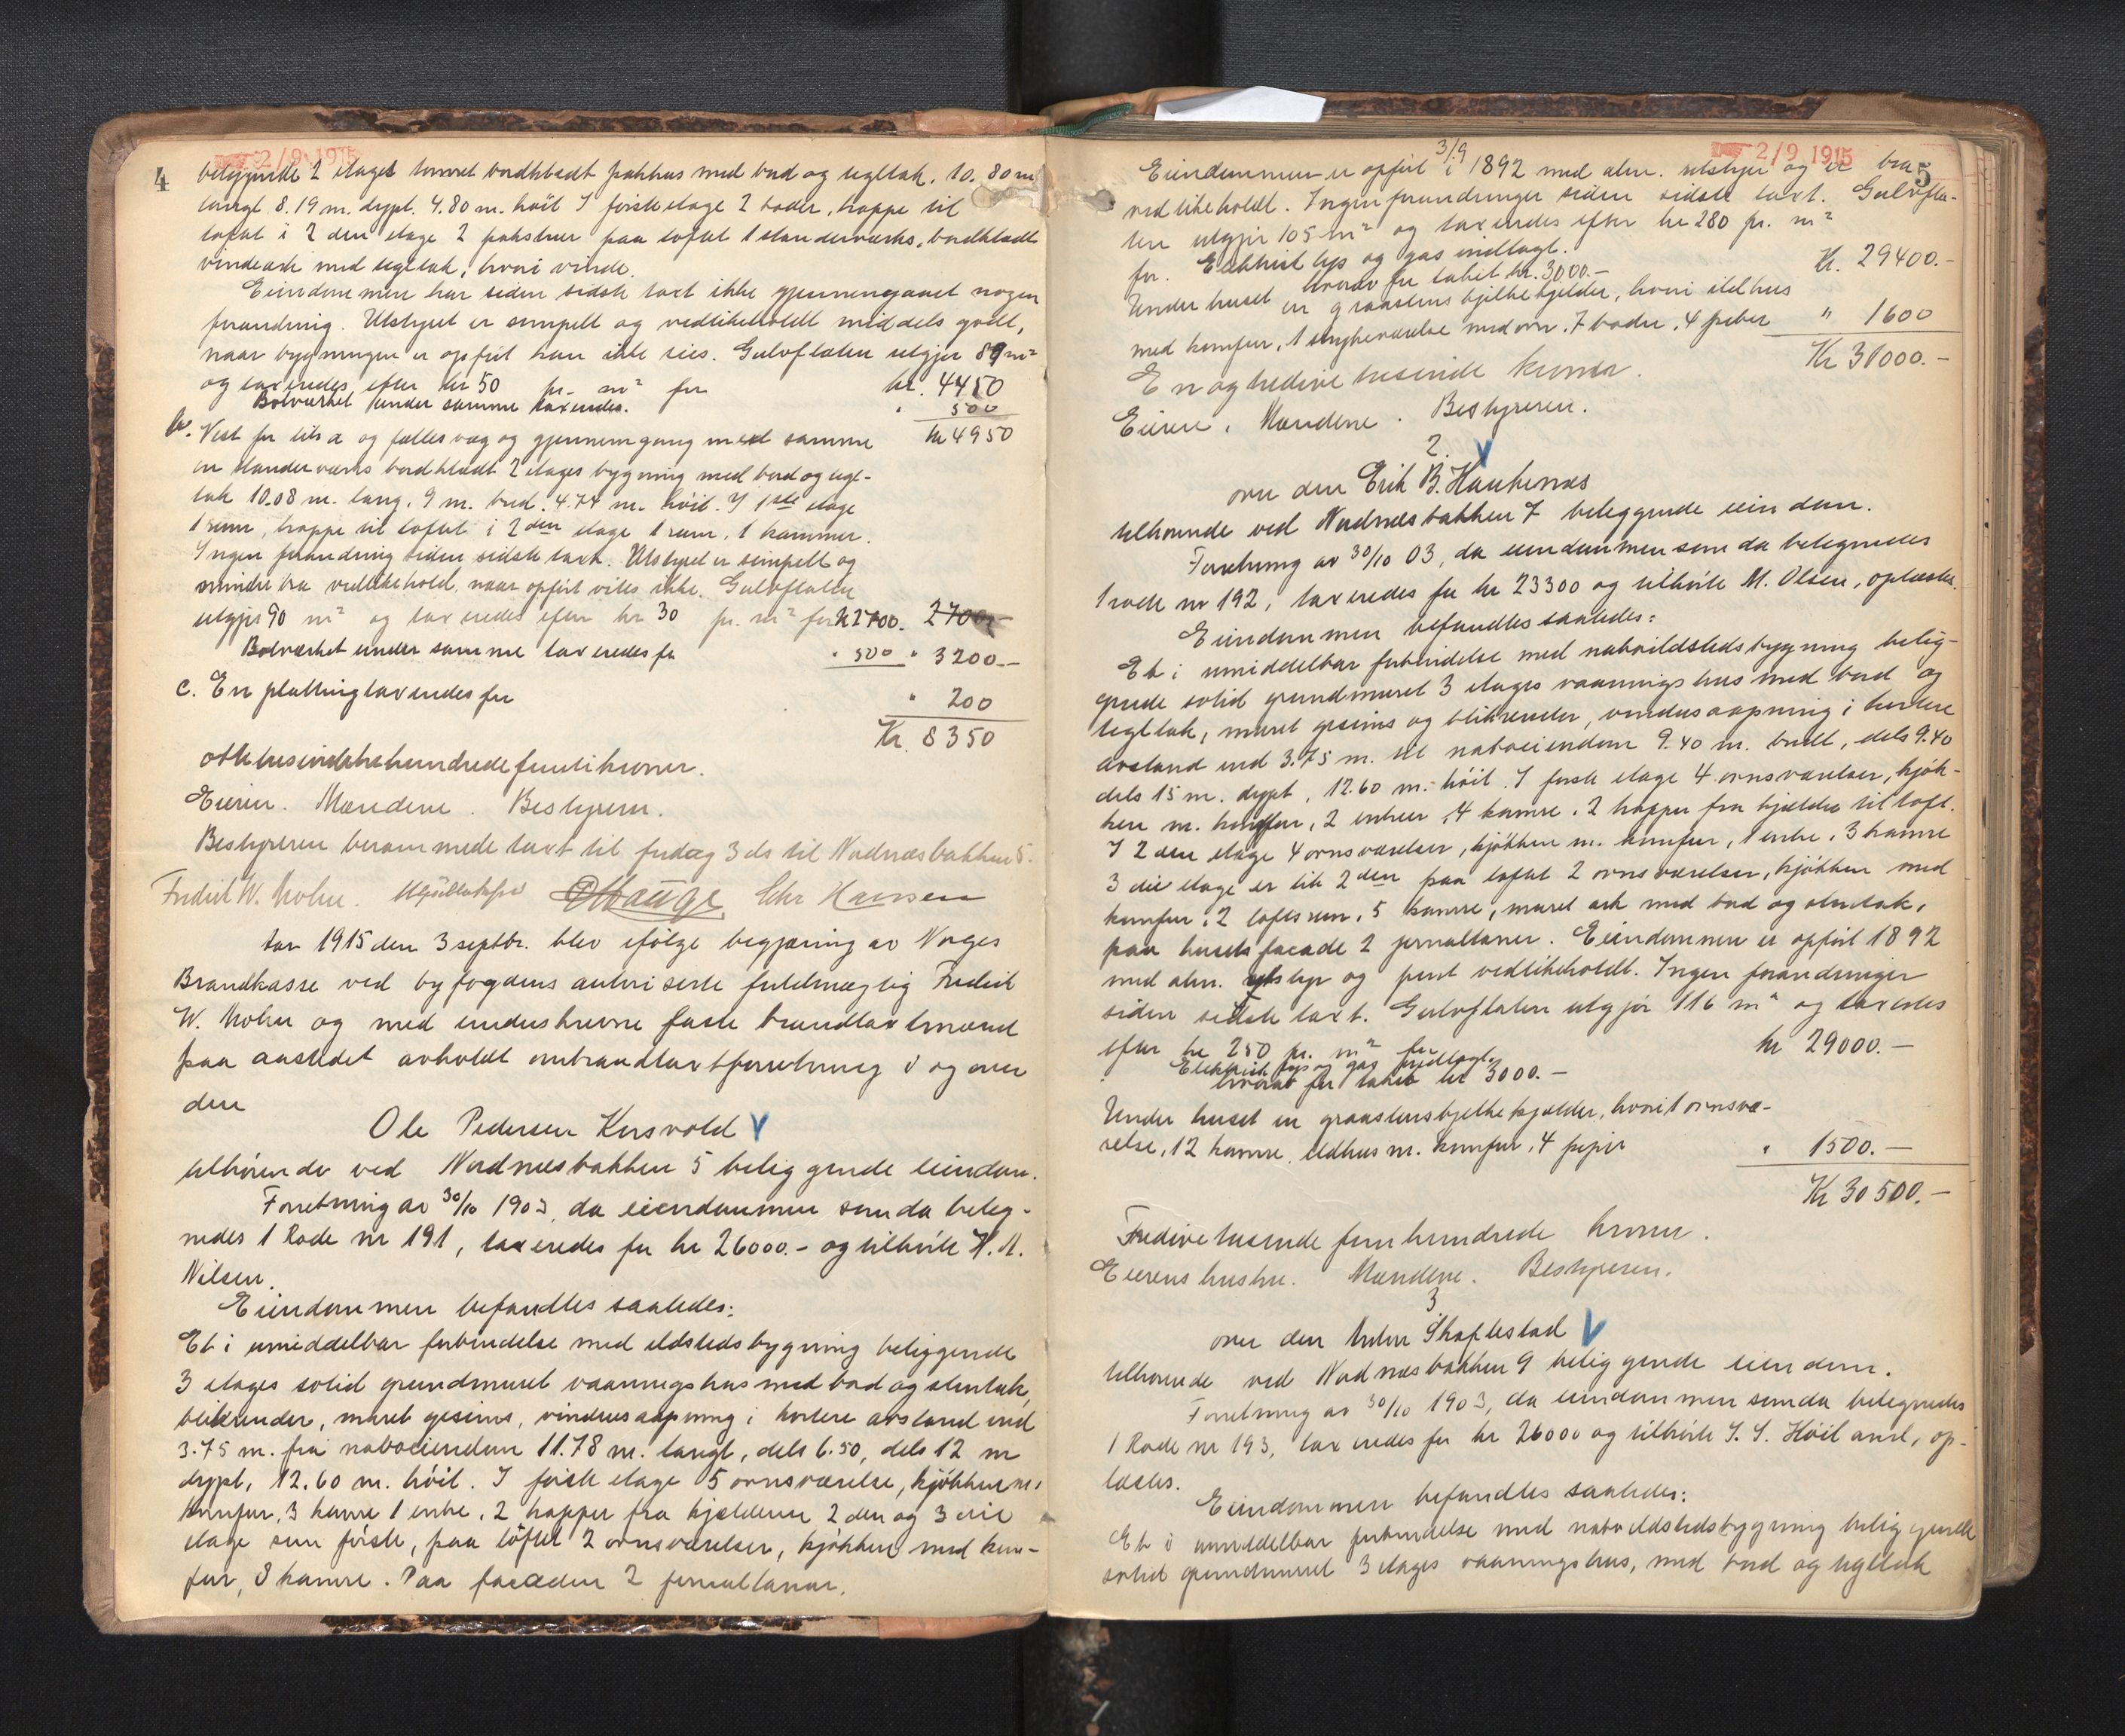 4
2/9 1915
beliggende 2 etages tømret bordklædt pakhus med bord og tegltak. 10.80 m
langt 8.19 m. dypt. 4.80 m. høit I første etage 2 boder, trappe til
loftet i 2 den etage 2 pakstuer paa loftet 1 standerværks, bordklædt
vindeark med tegltak, hvori vinde.
Eiendommen har siden sidste taxt ikke gjennemgaaet nogen
forandring. Utstyret er simpelt og vedlikeholdt middels godt,
naar bygningen er opført kan ikke sies. Gulvflaten utgjør 89 m²
og taxeredes efter kr 50 pr. m² for kr. 4450
Bolverket under samme taxeredes. " 500
b. Vest for litr a og fælles væg og gjennemgang med samme kr 4950
en standerværks bordklædt 2 etages bygning med bord og tegl-
tak 10.08 m. lang, 9 m. bred, 4.74 m. høit. I 1ste etage
1 rum, trappe til loftet i 2den etage 1 rum, 1 kammer.
Ingen forandring siden sidste taxt. Utstyret er simpelt og
mindre bra vedlikehold, naar opført vites ikke. Gulvflaten
utgjør 90 m² og taxeredes efter kr 30 pr. m² for kr 2700. 2700.-
Bolverket under samme taxeredes for " 500 " 3200.-
c. En platting taxeredes for " 200
Kr. 8350
otte tusindetrehundredefemti kroner.
Eieren. Mændene. Bestyreren.
Bestyreren berammede taxt til fredag 3 ds til Nordnæsbakken 5.
Fredrik W. Mohn. Chr Hansen
Aar 1915 den 3 septbr. blev ifølge begjæring av Norges
Brandkasse ved byfogdens autoriserte fuldmægtig Fredrik
W. Mohn og med underskrevne faste brandtaxtmænd
paa aastedet avholdt ombrandtaxtforretning i og over
den
Ole Pedersen Korsvold V
tilhørende ved Nordnæsbakken 5 beliggende eiendom.
Forretning av 30/10 1903, da eiendommen som da beteg-
nedes 1 Rode nr 191, taxeredes for kr 26000.- og tilhørte H. M.
Nilsen.
Eiendommen befandtes saaledes:
Et i umiddelbar forbindelse med ildstedsbygning beliggende
3 etages solid grundmuret vaaningshus med bord og stentak,
blikrender, muret gesims, vindusaapning i kortere avstand end
3.75 m. fra naboeiendom 11.78 m. langt, dels 6.50, dels 12 m
dypt, 12.60 m. høit. I første etage 5 ovnsværelse, kjøkken m.
komfur, 3 kamre 1 entre, 2 trapper fra kjælderen 2 den og 3 die
etage som første, paa loftet 2 ovnsværelser, kjøkken med kom-
fur, 3 kamre. Paa facaden 2 jernaltaner.
3/9
2/9 1915
5
Eiendommen er opført i 1892 med alm. utstyr og er bra
vedlikeholdt. Ingen forandringer siden sidste taxt. Gulvfla-
ten utgjør 105 m² og taxeredes efter kr 280 pr. m²
for. Elektrisk lys og gas indlagt. Kr. 29400.-
hvorav for taket kr. 3000.-
Under huset en graastens bjelkekjelder, hvori ildhus
med komfur, 1 strykeværelse med ovn, 7 boder, 4 piber " 1600
Kr 31000.-
En og tredive tusinde kroner.
Eieren. Mændene. Bestyreren.
2. V
over den Erik B. Haukenæs
tilhørende ved Nordnæsbakken 7 beliggende eiendom.
Forretning av 30/10 03, da eiendommen som da betegnedes
1 rode nr 192, taxeredes for kr 23300 og tilhørte M. Olsen, oplæstes.
Eiendommen befandtes saaledes:
Et i umiddelbar forbindelse med naboildstedsbygning belig-
gende solid grundmuret 3 etages vaaningshus med bord og
tegltak, muret gesims og blikrender, vindusaapning i kortere
avstand end 3.75 m. til naboeiendom 9.40 m. bredt, dels 9.40
dels 15 m. dypt, 12.60 m. høit. I første etage 4 ovnsværelser, kjøk-
ken m. komfur, 2 entreer, 4 kamre, 2 trapper fra kjælder til loft.
I 2 den etage 4 ovnsværelser, kjøkken m. komfur, 1 entre, 3 kamre
3 die etage er lik 2den paa loftet 2 ovnsværelser, kjøkken med
komfur, 2 loftsrum, 5 kamre, muret ark med bord og stentak,
paa husets facade 2 jernaltaner. Eiendommen er opført 1892
med alm. utstyr og pent vedlikeholdt. Ingen forandringer
siden sidste taxt. Gulvflaten utgjør 116 m² og taxeredes
efter kr 250 pr. m² for kr 29000.-
Elektrisk lys og gas indlagt.
hvorav for taket kr 3000.-
Under huset en graastensbjelkekjælder, hvori 1 ovnsvæ-
relse, 12 kamre, ildhus m. komfur, 4 piper " 1500.-
Kr 30500.-
Tredivetusinde femhundrede kroner.
Eierens hustru. Mændene. Bestyreren.
3
over den Anton Skaftestad V
tilhørende ved Nordnæsbakken 9 beliggende eiendom.
Forretning av 30/10 1903, da eiendommen som da betegnedes
1 Rode nr 193, taxeredes for kr 26000 og tilhørte J. S. Høiland, op-
læstes.
Eiendommen befandtes saaledes:
Et i umiddelbar forbindelse med naboildstedsbygning beliggende
solid grundmuret 3 etages vaaningshus, med bord og tegltak